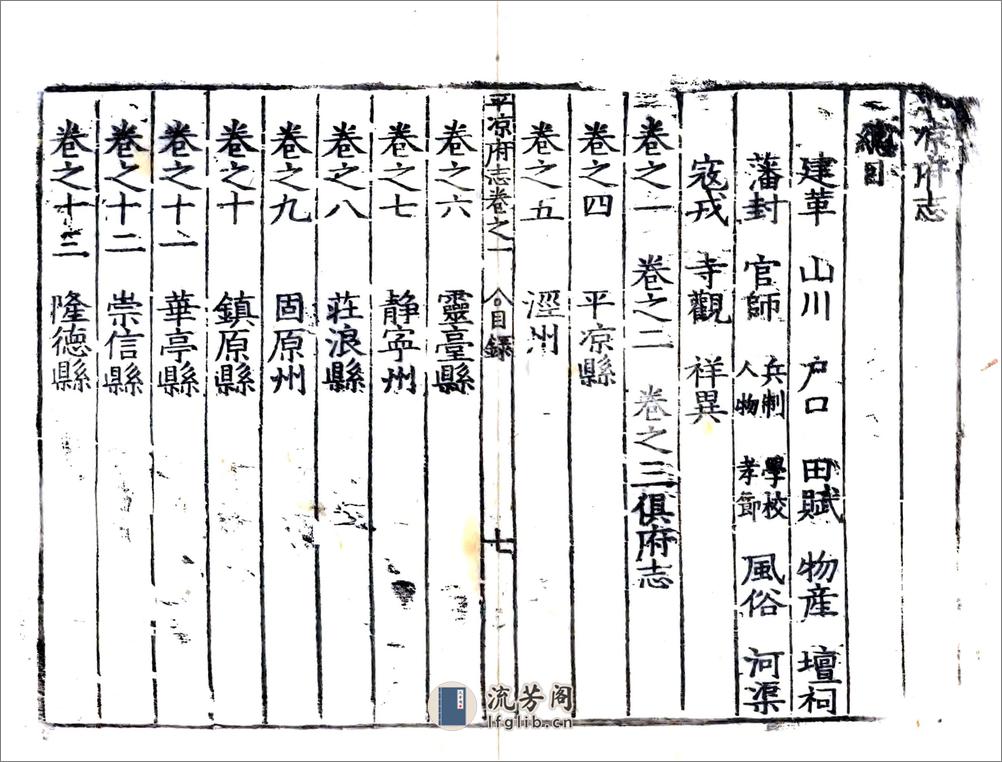 平凉府志
總目
建革 山川 户口 田賦 物産 壇祠
藩封 官師 兵制人物 學校孝節 風俗 河渠
寇戎 寺觀 祥異
卷之一 卷之二 卷之三俱府志
卷之四 平凉縣
卷之五 涇州
平凉府志卷之一 目録 七
卷之六 靈臺縣
卷之七 静寧州
卷之八 莊浪縣
卷之九 固原州
卷之十 鎮原縣
卷之十一 華亭縣
卷之十二 崇信縣
卷之十三 隆德縣
流芳阁
lfglib.cn